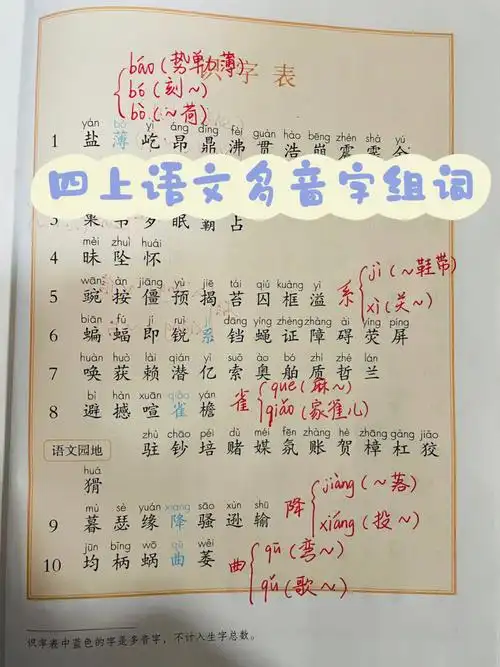 识字表
báo（势单力薄）
bó（刻～）
bò（～荷）
yán bò yì áng dǐng fèi guàn hào bēng zhèn shà yú
1 盐 薄 屹 昂 鼎 沸 贯 浩 崩 震 霎 余
四上语文多音字组词
3 巢 苇 罗 眠 霸 占
mèi zhuì huái
4 昧 坠 怀
wān àn jiāng yù jiē tái qiú kuàng yì
5 豌 按 僵 预 揭 苔 囚 框 溢
系 jì（～鞋带）
xì（关～）
biān fú jí ruì xì dāng yíng zhèng zhàng ài yíng píng
6 蝙 蝠 即 锐 系 铛 蝇 证 障 碍 荧 屏
huàn huò lài qián yì suǒ ào bó zhì zhé lán
7 唤 获 赖 潜 亿 索 奥 舶 质 哲 兰
bì hàn xuān qiǎo yán
8 避 撼 喧 雀 檐
雀 que（麻～）
qiǎo（家雀儿）
zhù chāo péi dǔ méi fēn zhàng hè zhāng gàng jiǎo
语文园地 驻 钞 培 赌 媒 氛 账 贺 樟 杠 狡
huá
猾
mù sè yuán xiáng sāo xùn shū
9 暮 瑟 缘 降 骚 逊 输
降 jiàng（～落）
xiáng（投～）
jūn bǐng wō qū wěi
10 均 柄 蜗 曲 萎
曲 qū（弯～）
qǔ（歌～）
识字表中蓝色的字是多音字，不计入生字总数。